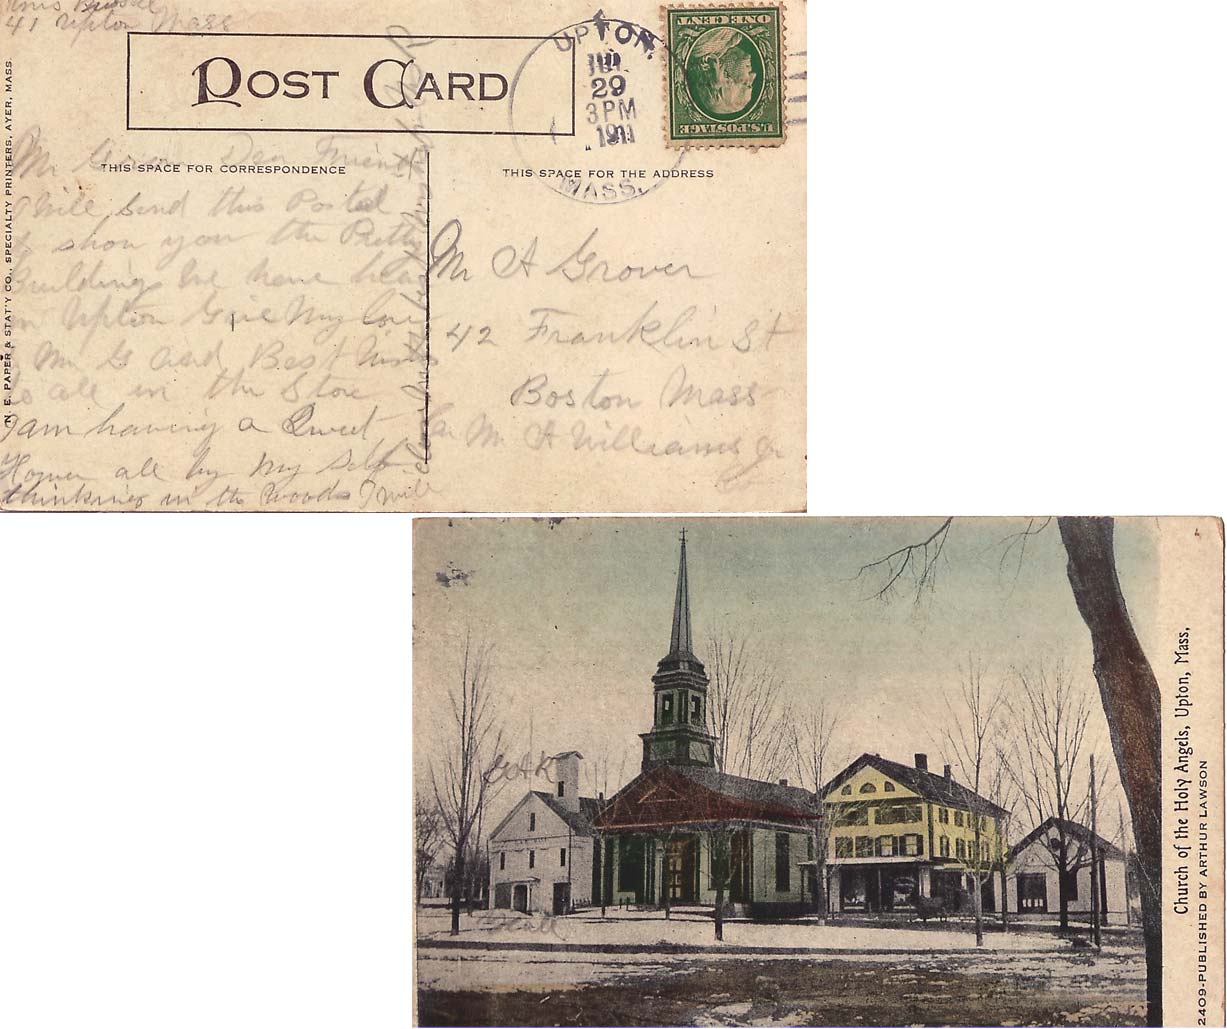 41 Upton Mass
POST CARD
UPTON.
JUL
29
3 PM
1911
MASS.
ONE CENT
U.S. POSTAGE
N. E. PAPER & STAT'Y CO., SPECIALTY PRINTERS, AYER, MASS.
THIS SPACE FOR CORRESPONDENCE
THIS SPACE FOR THE ADDRESS
Mr Dear Friend
I Will send this Postal
to show you the Pretty
Buildings We have
in Upton Give My love
Mr G and Best
to all in the Store
I am having a Quiet
all by My Self
thinking in the Woods I will
Mr A Grover
42 Franklin St
Boston Mass
Mr A Williams
GAR
Hall
Church of the Holy Angels, Upton, Mass,
2409-PUBLISHED BY ARTHUR LAWSON